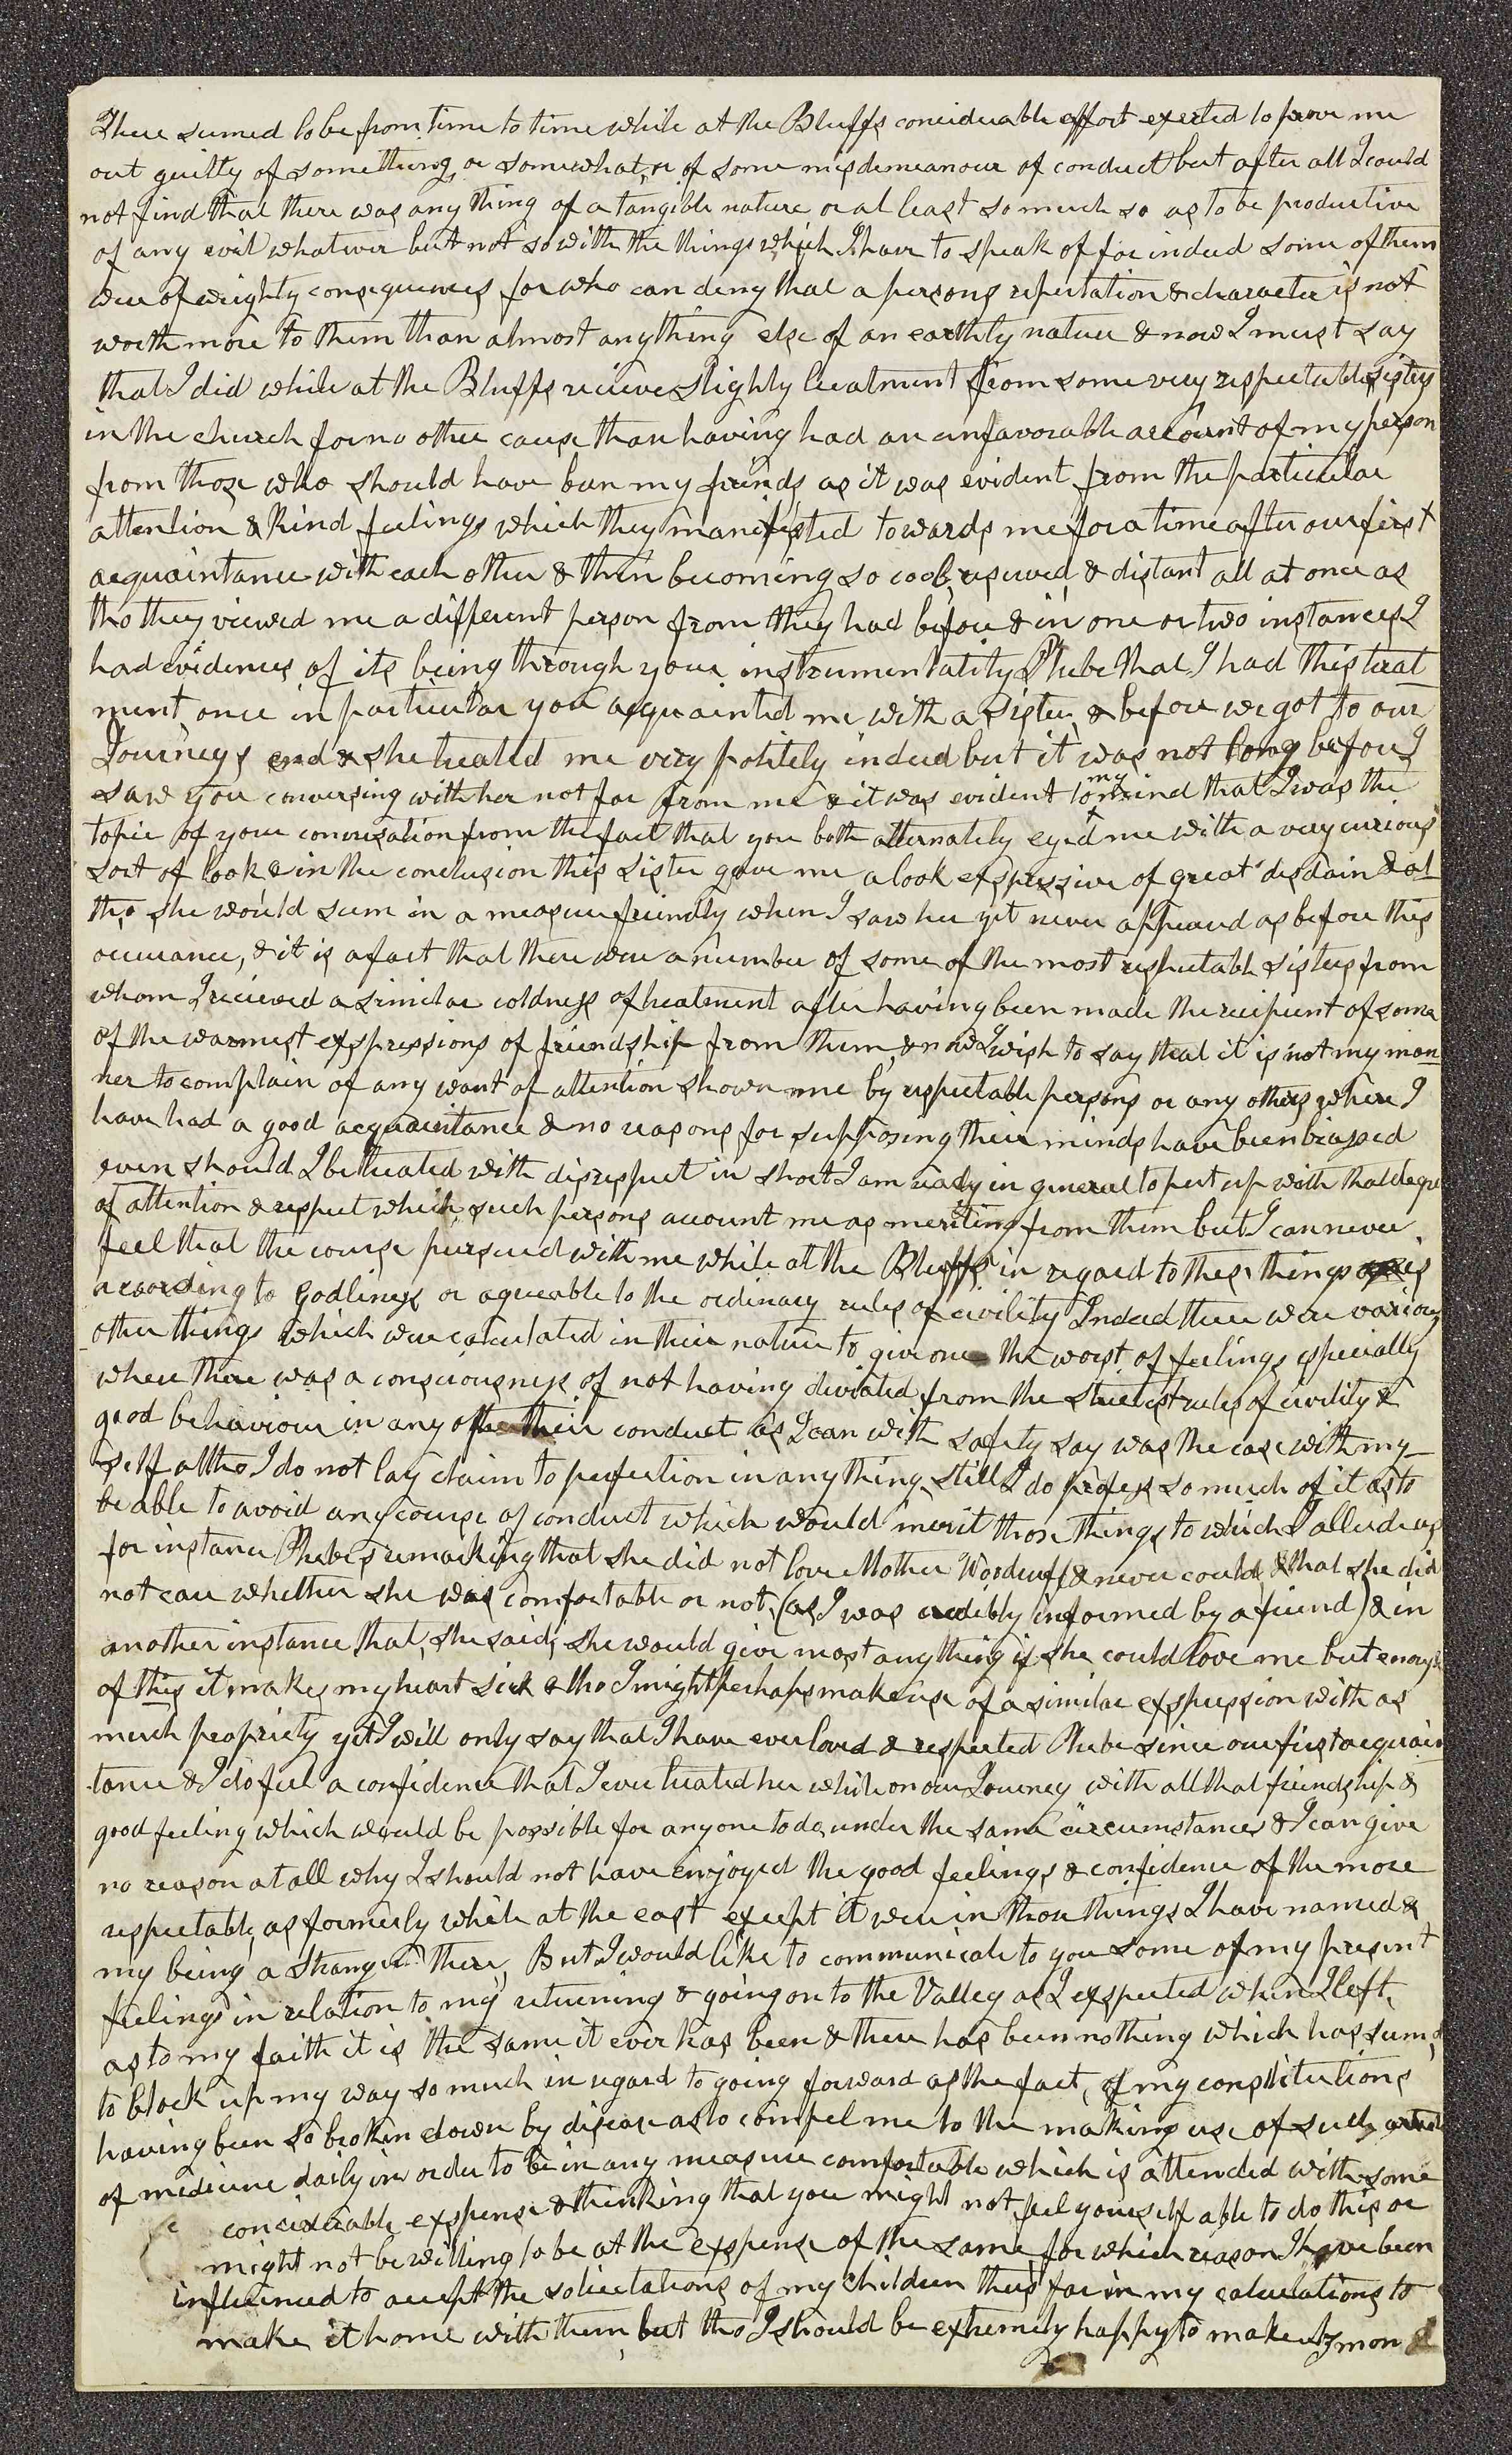 There seemed to be from time to time while at the Bluffs considerable effort exerted to prove me
out guilty of something, or somewhat, or of some misdemeanour of conduct but after all I could
not find that there was any thing of a tangible nature or at least so much so as to be productive
of any evil whatever but not so with the things which I have to speak of for indeed some of them
were of weighty consequences for who can deny that a persons reputation & character is not
worth more to them than almost anything else of an earthly nature & now I must say
that I did while at the Bluffs recieve slighty treatment from some very respectable sisters
in the church for no other cause than having had an unfavorable account of my person
from those who should have been my friends as it was evident from the particular
attention & kind feelings which they manifested towards me for a time after our first
acquaintance with each other & then becoming so cool, reserved, & distant all at once as
tho they viewed me a different person from they had before & in one or two instances I
had evidences of its being through your instrumentality Phebe that I had this treat
ment, once in particular you acquainted me with a Sister, & before we got to our
Journeys end & she treated me very politely indeed but it was not long before I
saw you conversing with her not far from me & it was evident to my mind that I was the
topic of your conversation from the fact that you both alternately eyed me with a very curious
sort of look & in the conclusion this Sister gave me a look expressive of great disdain & al
tho she would seem in a measure friendly when I saw her yet never appeared as before this
occurance, & it is a fact that there were a number of some of the most respectable sisters from
whom I recieved a similar coldness of treatment after having been made the recipient of some
of the warmest exspressions of friendship from them, & now I wish to say that it is not my man
ner to complain of any want of attention shown me by respectable persons or any others where I
have had a good acquaintance & no reasons for supposing their minds have been biassed
even should I be treated with disrespect in short I am ready in general to put up with that degre
of attention & respect which such persons account me as meriting from them but I can never
feel that the course pursued with me while at the Bluffs in regard to these things is
according to Godliness or agreeable to the ordinary rules of civility Indeed there were various
other things which were calculated in their nature to give one the worst of feelings especially
where there was a consciousness of not having deviated from the strictest rules of civility &
good behaviour in any of their conduct as I can with safety say was the case with my
self altho I do not lay claim to perfection in anything, still I do profess so much of it as to
be able to avoid any course of conduct which would merit those things to which I allude as
for instance Phebe's remarking that she did not love Mother Woodruff & never could & that she did
not care whether she was comfortable or not, (as I was credibly informed by a friend) & in
another instance that, she said, she would give most anything if she could love me but enough
of this it makes my heart sick & tho I might perhaps make use of a similar exspression with as
much propriety yet I will only say that I have ever loved & respected Phebe since our first acquain
tance & I do feel a confidence that I ever treated her while on our Journey with all that friendship &
good feeling which would be possible for anyone to do, under the same circumstances & I can give
no reason at all why I should not have enjoyed the good feelings & confidence of the more
respectable, as formerly while at the east except it were in those things I have named &
my being a stranger there, But I would like to communicate to you some of my present
feelings in relation to my returning & going on to the Valley as I exspected when I left,
as to my faith it is the same it ever has been & there has been nothing which has seemd
to block up my way so much in regard to going forward as the fact, of my constitutions
having been so broken down by disease as to compel me to the making use of such
of medicine daily in order to be in any measure comfortable which is attended with some
considerable exspense & thinking that you might not feel yourself able to do this or
might not be willing to be at the exspense of the same, for which reason I have been
influenced to accept the solicitations of my children thus far in my calculations to
make it home with them, but tho I should be extremely happy to make